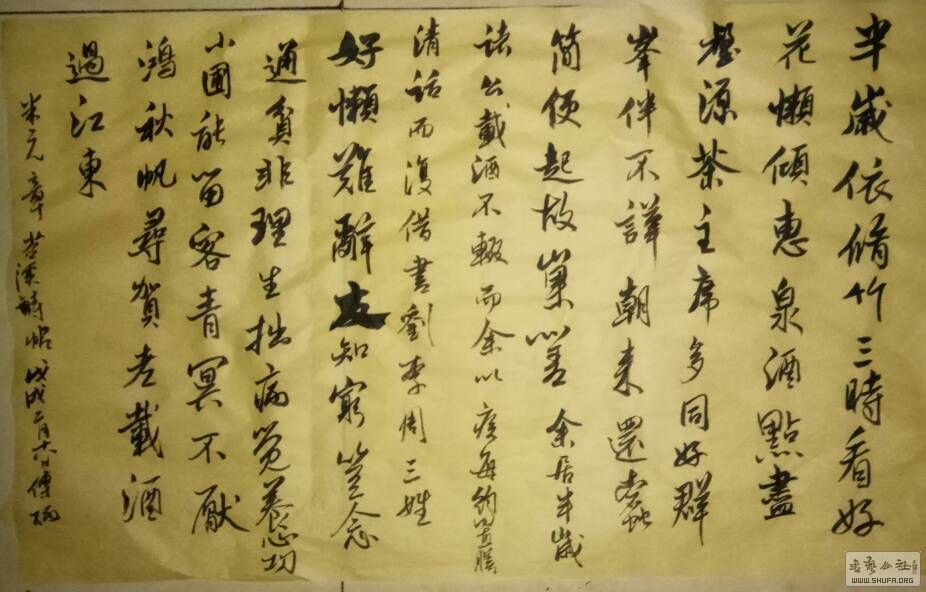 半歲依脩竹三時看好
花懶傾惠泉酒點盡
壑源茶主席多同好群
峯伴不譁朝來還蠹
簡便起故巢嗟余居半歲
諸公載酒不輟而余以疾每約置膳
清話而復借書劉李周三姓
好懶難辭友知窮豈念
通貧非理生拙病覺養心功
小圃能留客青冥不厭
鴻秋帆尋賀老載酒
過江東
米元章苕溪詩帖戊戌二月
書藝公社
WWW.SHUFA.ORG